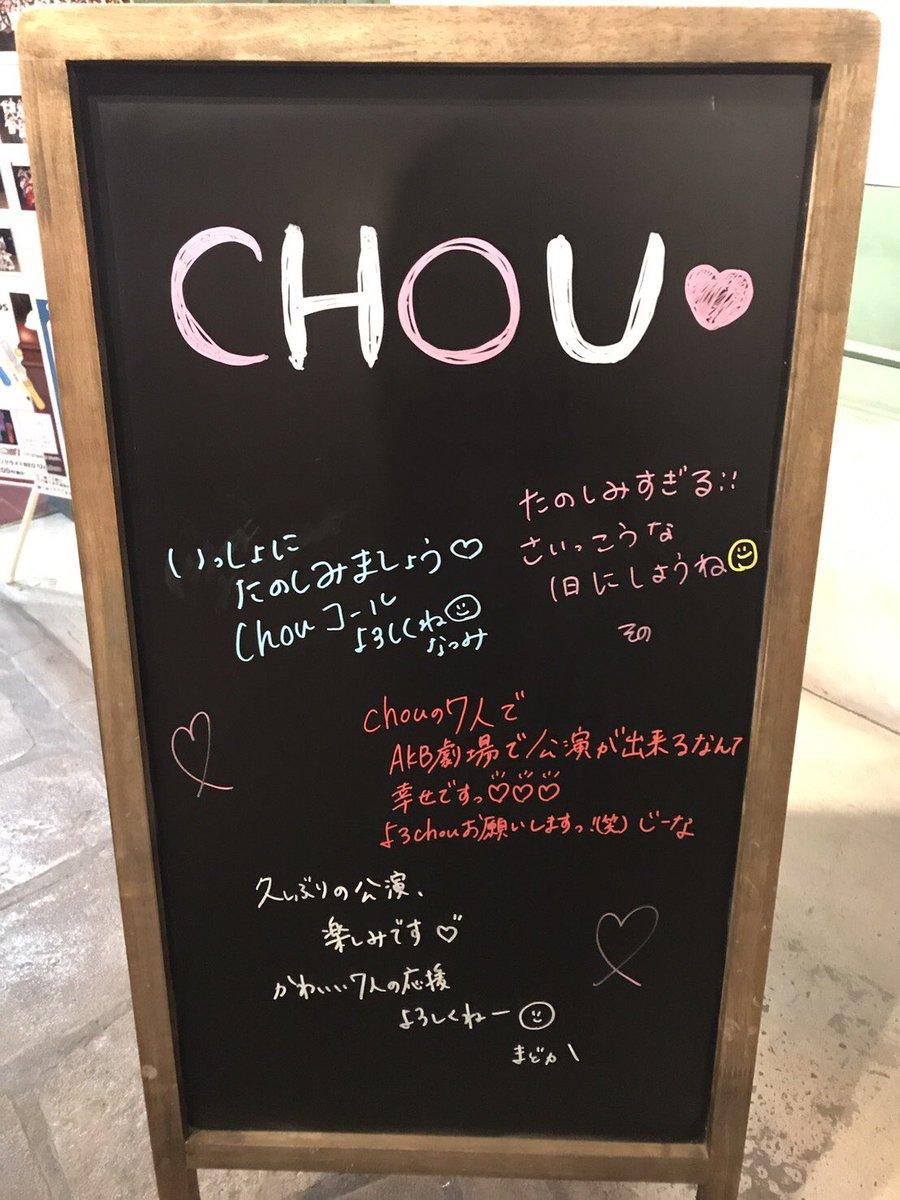 CHOU♥
たのしみすぎる!!
さいっこうな
1日にしようね
その
いっしょに
たのしみましょう♡
Chouコール
よろしくね
なつみ
chouの7人で
AKB劇場で公演が出来るなんて
幸せですっ♡♡♡
よろchouお願いしますっ!(笑) じーな
久しぶりの公演、
楽しみです♡
かわいい7人の応援
よろしくねー
まどか